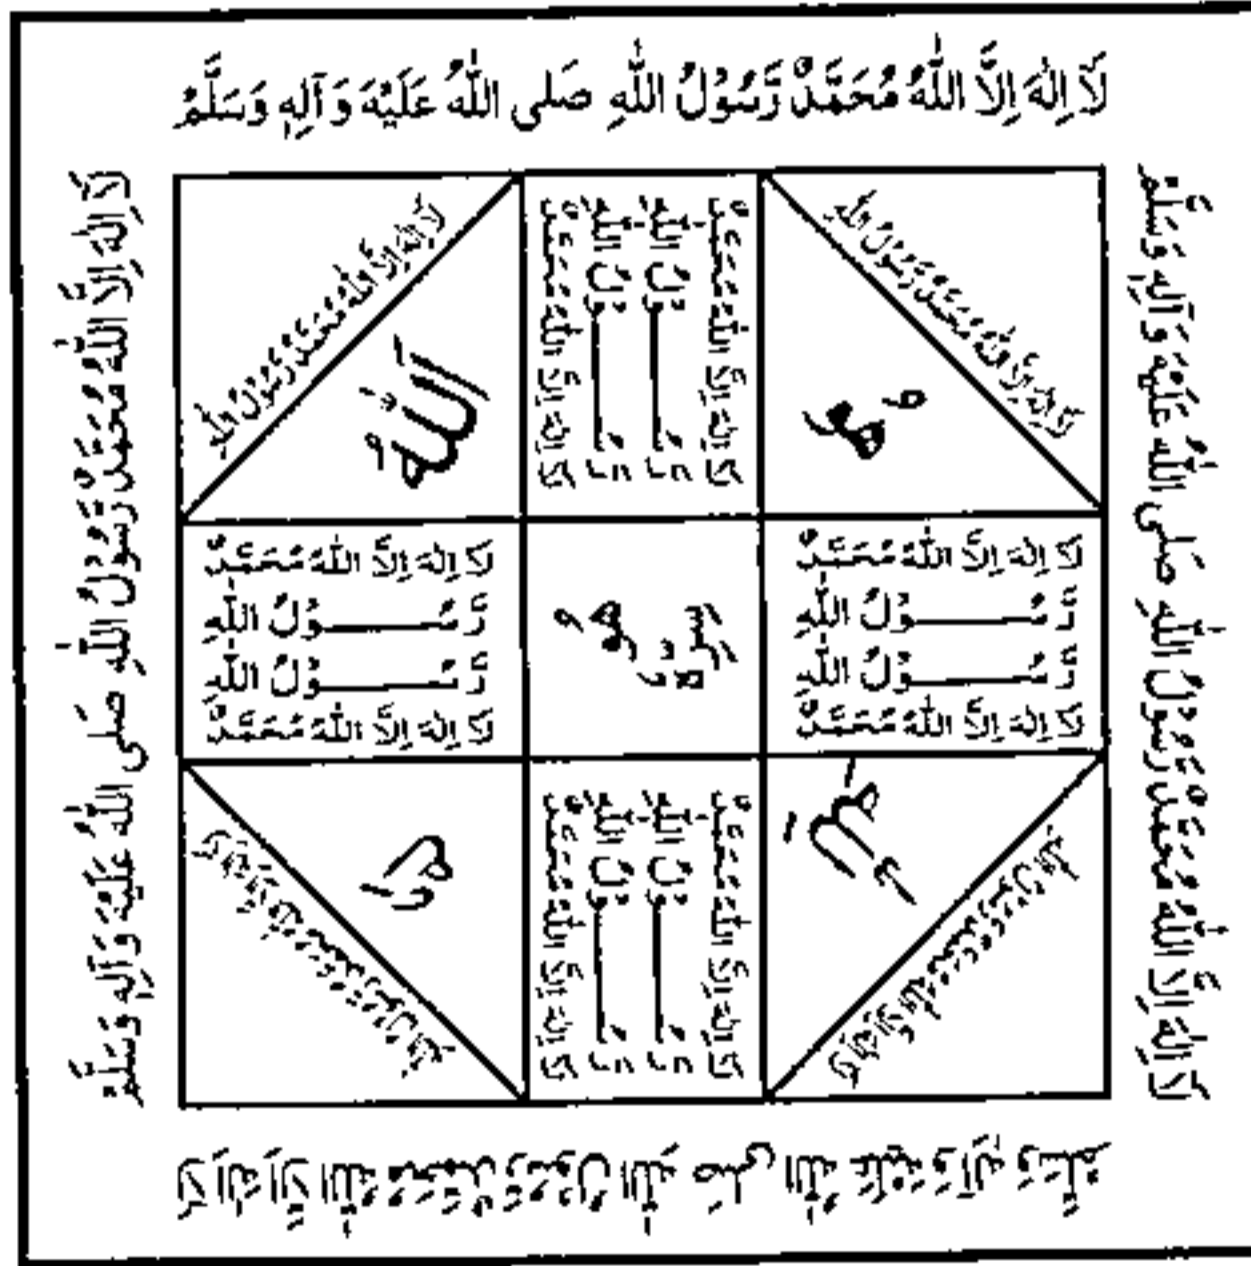 لَا اِلٰهَ اِلَّا اللّٰهُ مُحَمَّدٌ رَّسُوْلُ اللّٰهِ صَلَى اللّٰهُ عَلَيْهَ وَ آلِهٖ وَسَلَّمْ
لَا اِلٰهَ اِلَّا اللّٰهُ مُحَمَّدٌ رَّسُوْلُ اللّٰهِ صَلَى اللّٰهُ عَلَيْهَ وَ آلِهٖ وَسَلَّمْ
لَا اِلٰهَ اِلَّا اللّٰهُ مُحَمَّدٌ رَّسُوْلُ اللّٰهِ
لَا اِلٰهَ اِلَّا اللّٰهُ مُحَمَّدٌ
رَّسُوْلُ اللّٰهِ
رَّسُوْلُ اللّٰهِ
لَا اِلٰهَ اِلَّا اللّٰهُ مُحَمَّدٌ
لَا اِلٰهَ اِلَّا اللّٰهُ مُحَمَّدٌ رَّسُوْلُ اللّٰهِ
اَللّٰهُ
لَا اِلٰهَ اِلَّا اللّٰهُ مُحَمَّدٌ
رَّسُوْلُ اللّٰهِ
رَّسُوْلُ اللّٰهِ
لَا اِلٰهَ اِلَّا اللّٰهُ مُحَمَّدٌ
لَا اِلٰهَ اِلَّا اللّٰهُ مُحَمَّدٌ
رَّسُوْلُ اللّٰهِ
رَّسُوْلُ اللّٰهِ
لَا اِلٰهَ اِلَّا اللّٰهُ مُحَمَّدٌ
لَا اِلٰهَ اِلَّا اللّٰهُ مُحَمَّدٌ رَّسُوْلُ اللّٰهِ
لَا اِلٰهَ اِلَّا اللّٰهُ مُحَمَّدٌ
رَّسُوْلُ اللّٰهِ
رَّسُوْلُ اللّٰهِ
لَا اِلٰهَ اِلَّا اللّٰهُ مُحَمَّدٌ
لَا اِلٰهَ اِلَّا اللّٰهُ مُحَمَّدٌ رَّسُوْلُ اللّٰهِ
لَا اِلٰهَ اِلَّا اللّٰهُ مُحَمَّدٌ رَّسُوْلُ اللّٰهِ صَلَى اللّٰهُ عَلَيْهَ وَ آلِهٖ وَسَلَّمْ
لَا اِلٰهَ اِلَّا اللّٰهُ مُحَمَّدٌ رَّسُوْلُ اللّٰهِ صَلَى اللّٰهُ عَلَيْهَ وَ آلِهٖ وَسَلَّمْ